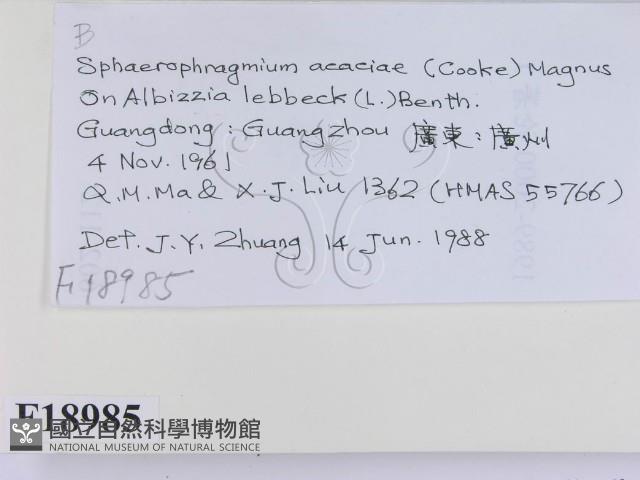 B
Sphaerophragmium acaciae (Cooke) Magnus
On Albizzia lebbeck (L.) Benth.
Guangdong: Guangzhou 廣東: 廣州
4 Nov. 1961
Q.M.Ma & X.J. Liu 1362 (HMAS 55766)
Det. J.Y. Zhuang 14 Jun. 1988
F18985
F18985
國立自然科學博物館
NATIONAL MUSEUM OF NATURAL SCIENCE